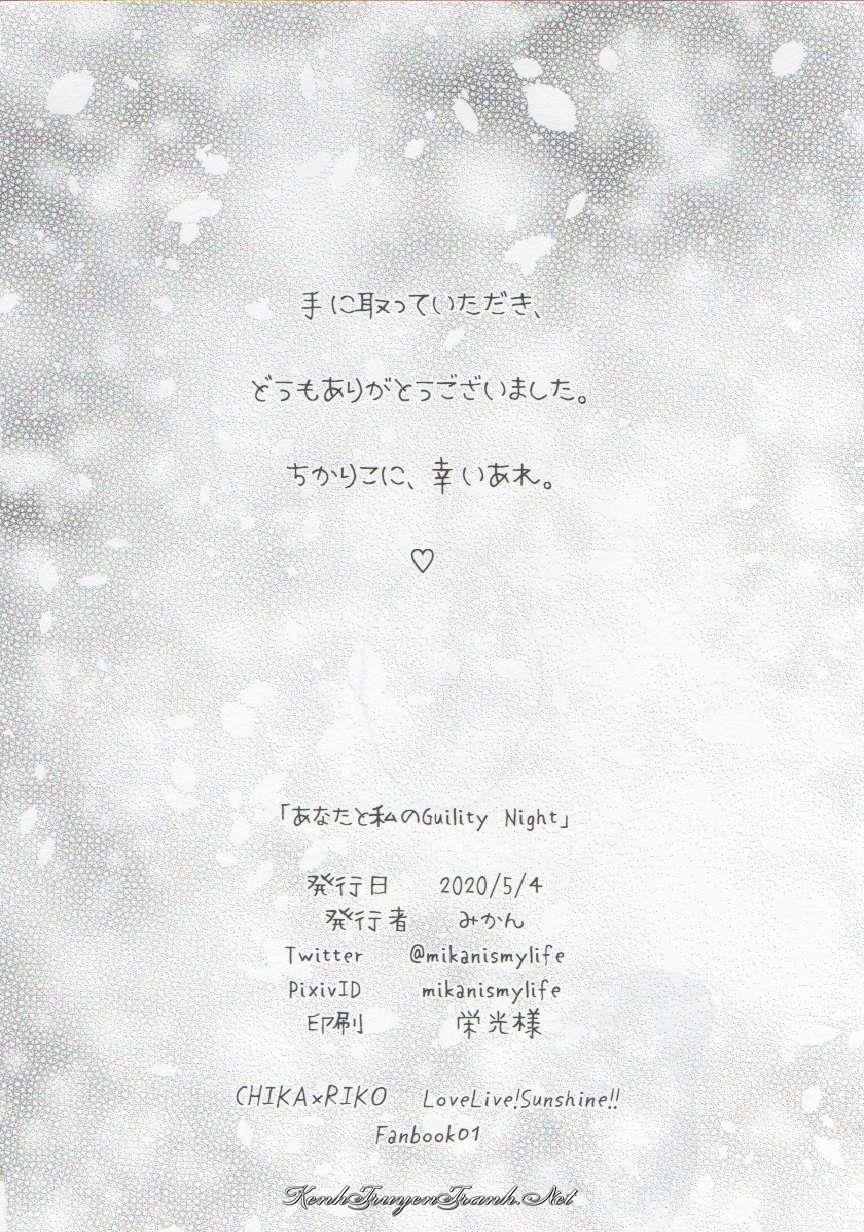 手に取っていただき、
どうもありがとうございました。
ちかりこに、幸いあれ。
♡
「あなたと私のGuility Night」
発行日 2020/5/4
発行者 みかん
Twitter @mikanismylife
PixivID mikanismylife
印刷 栄光様
CHIKA×RIKO LoveLive!Sunshine!!
Fanbook01
KenhTruyenTranh.Net